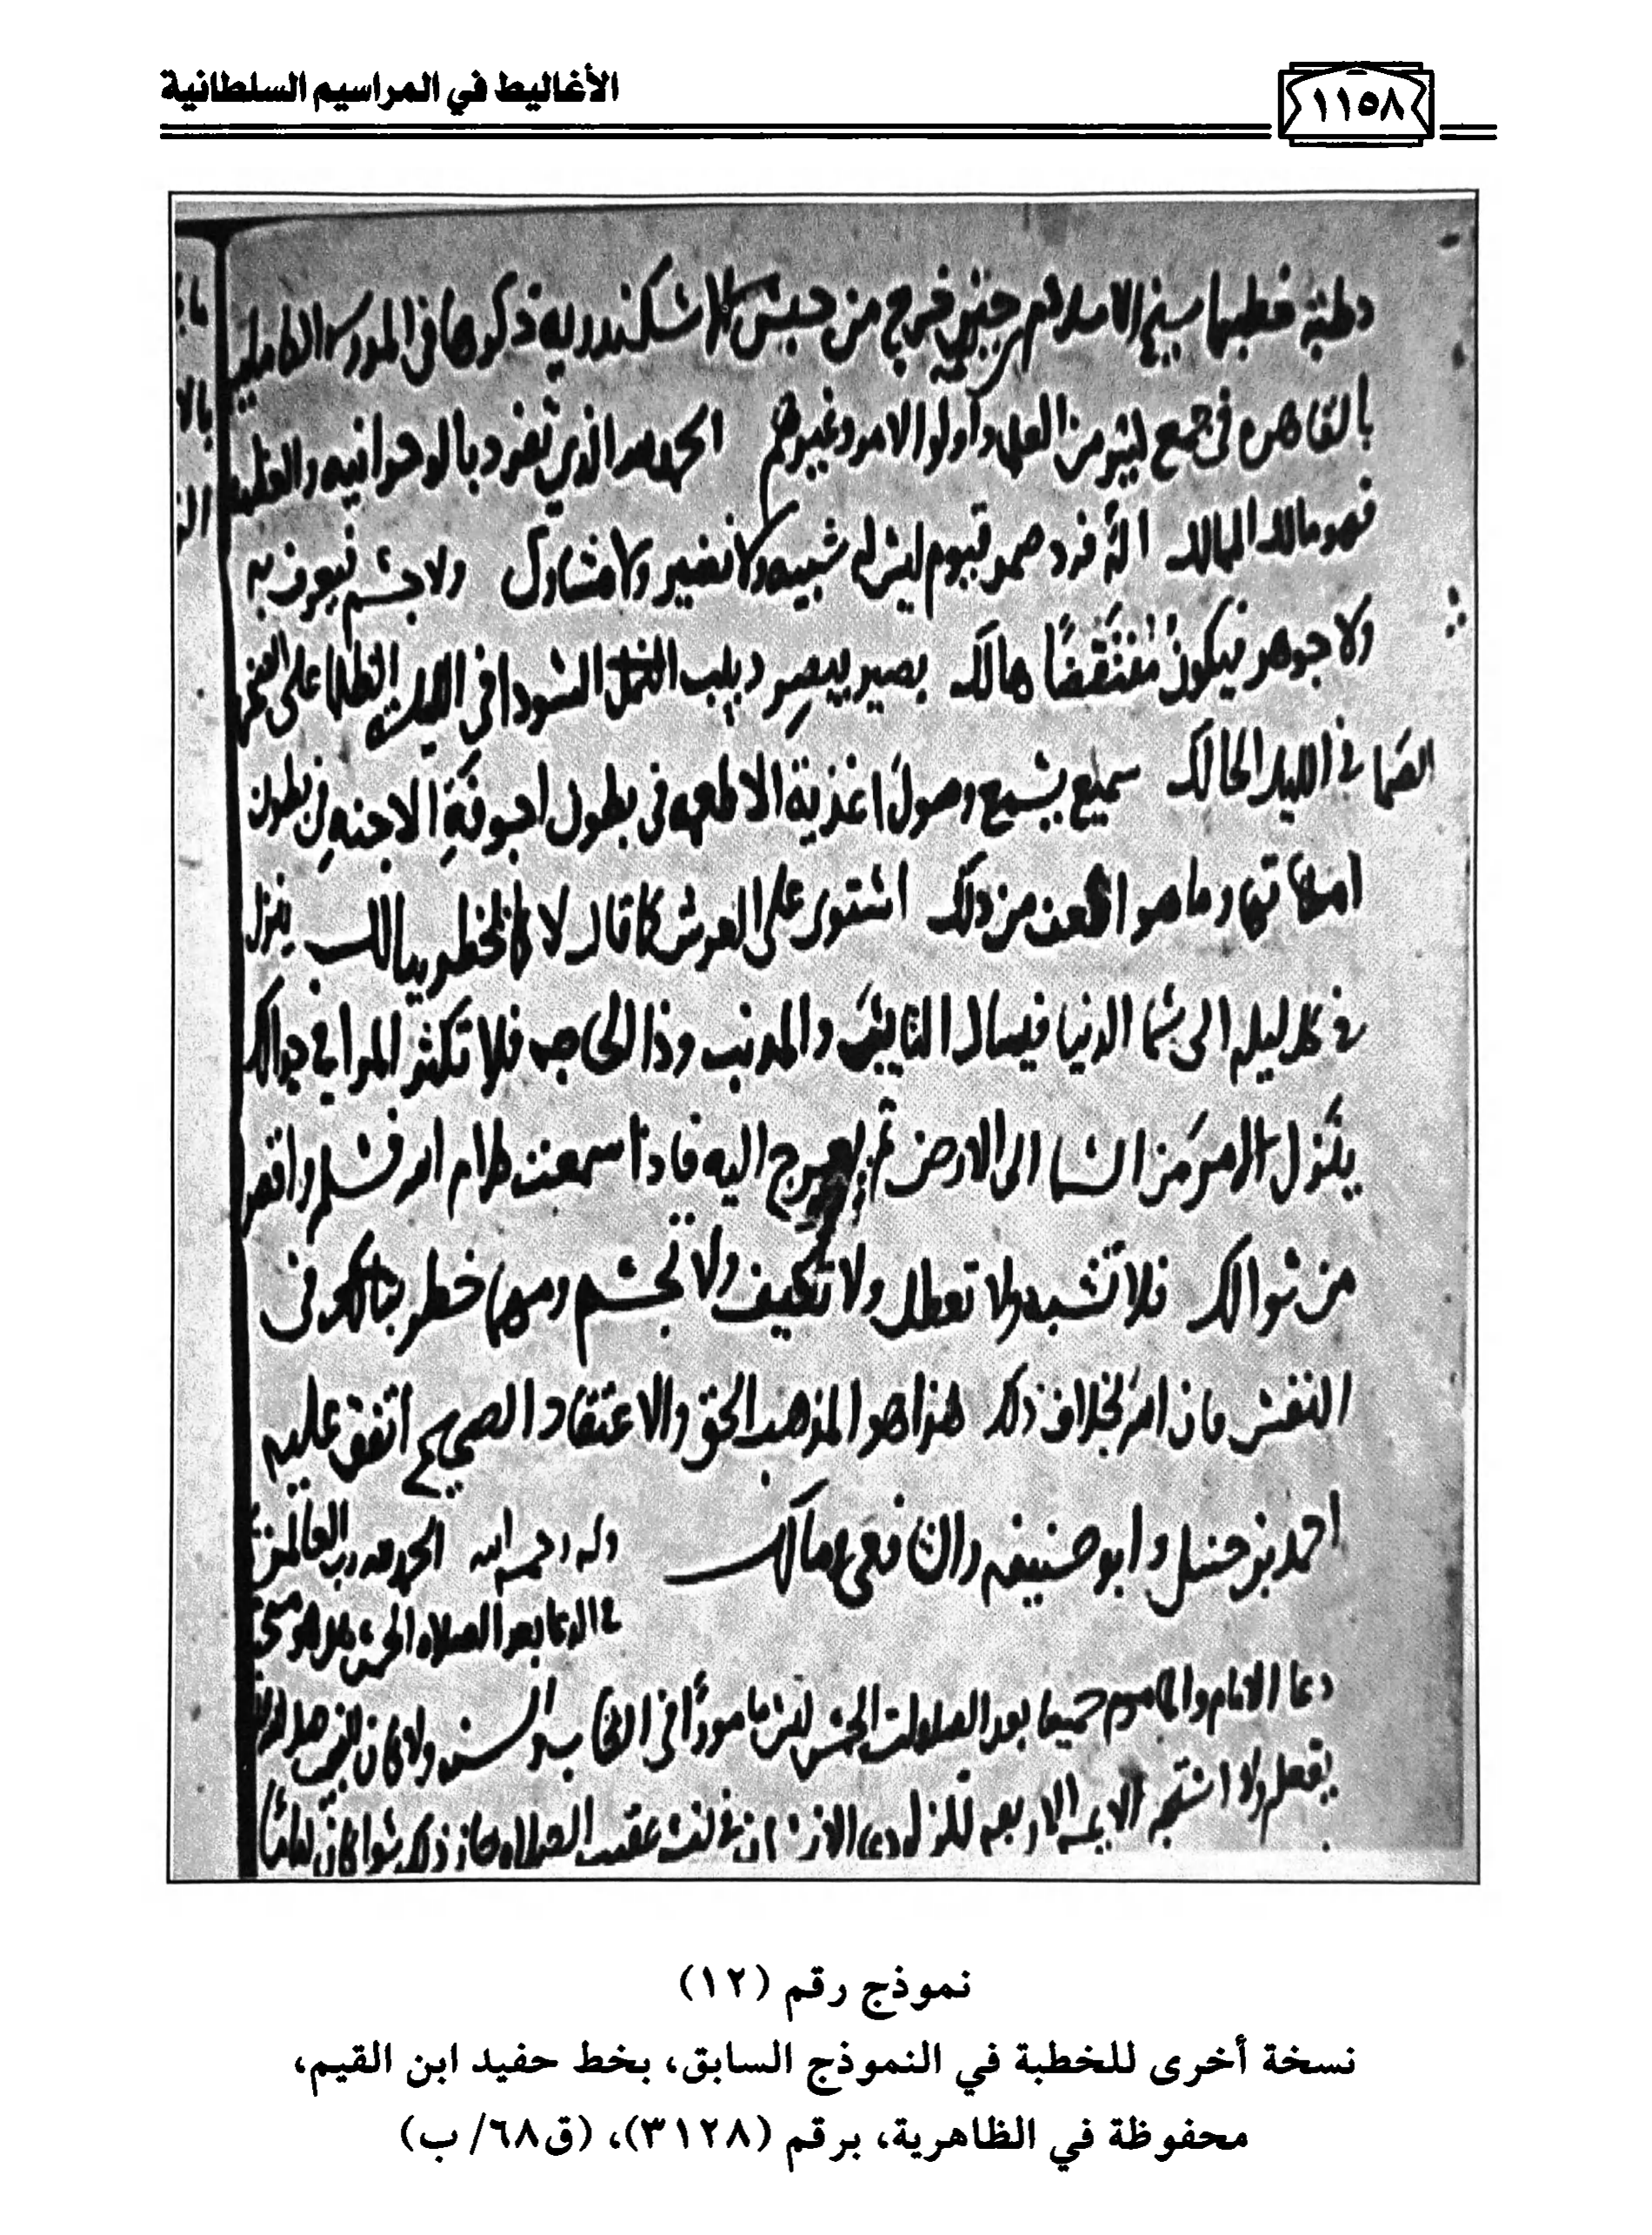 الأغاليط في المراسيم السلطانية
١١٥٨
خطبة خطبها شيخ الاسلام حين خرج من حبس الاسكندريه ذكرها في المدرسه الكامليه
بالقاهره في جمع كثير من العلما وأولوا الامر وغيرهم الحمد لله الذي تفرد بالوحدانيه والعظمه
فهو مالك الممالك اله فرد صمد قيوم ليس له شبيه ولا نضير ولا مشارك ولا جسم فيعرف به
ولا جوهر فيكون منتقضًا هالك بصير يبصر دبيب النمل السودا في الليلة الظلما على الصخره
الصما في الليل الحالك سميع يسمع وصول اغذية الاطعمه في بطون اجوفة الاجنه في بطون
امهاتها وما هو الطف من ذلك استوى على العرش كما قال لا كما يخطر ببالك ينزل
في كل ليله الى سما الدنيا فيسال التايب والمذنب وذا الحاجه فلا تكثر المرا في جدالك
يتنزل الامر من السما الى الارض ثم يعرج اليه فاذا سمعت كلام الله فسلم واقصر
من سوالك فلا تشبه ولا تعطل ولا تكيف ولا تجسم ومهما خطر ببالك في
النفس فان الله بخلاف ذلك هذا هو المذهب الحق والاعتقاد الصحيح اتفق عليه
احمد بن حنبل وابو حنيفه والشافعي ومالك وله رحمه الله الحمد لله رب العالمين
في الدعا بعد الصلاه الخمس هل هو مستحب
دعا الامام والماموم جميعا بعد الصلوات الخمس ليس مامورًا في الكتاب والسنه ولا كان النبي صلى الله
يفعل ولا استحبه الايمه الاربعه
نموذج رقم (١٢)
نسخة أخرى للخطبة في النموذج السابق، بخط حفيد ابن القيم،
محفوظة في الظاهرية، برقم (٣١٢٨)، (ق٦٨/ ب)